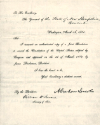 To His Excellency
The Governor of the State of New Hampshire,
Concord.
Washington,
1861.
I transmit an authenticated copy of a Joint Resolution
to amend the Constitution of the United States adopted by
Congress and approved on the 2d of March 1861 by
James Buchanan, President.
I have the honor to be,
Your Excellency's obedient servant,
Abraham Lincoln
By the President:
William H. Seward
Secretary of State.